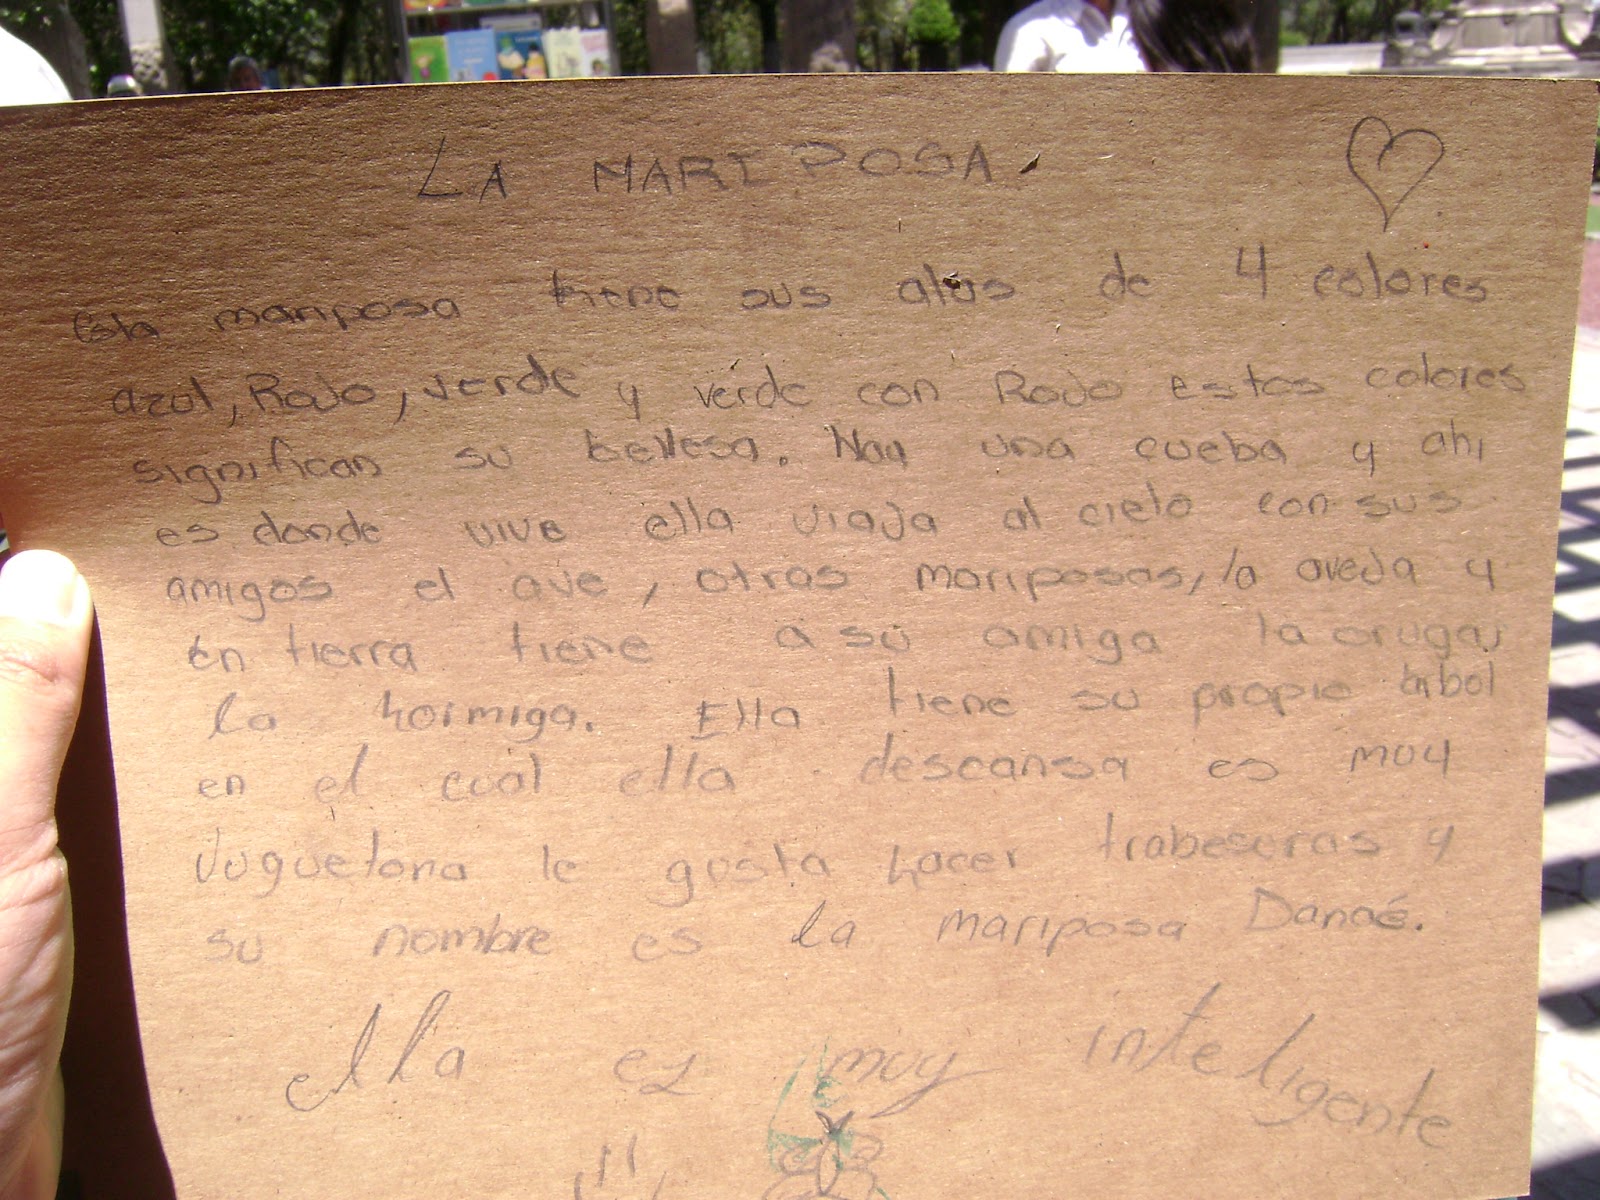 LA MARIPOSA.
Esta mariposa tiene sus alas de 4 colores
azul, Rojo, verde y verde con Rojo estos colores
significan su bellesa. Hay una cueba y ahi
es donde vive ella viaja al cielo con sus
amigos el ave, otras mariposas, la aveja y
en tierra tiene a su amiga la oruga,
la hormiga. Ella tiene su propio arbol
en el cual ella descansa es muy
Juguetona le gusta hacer trabesuras y
su nombre es la mariposa Danaé.
ella es muy inteligente